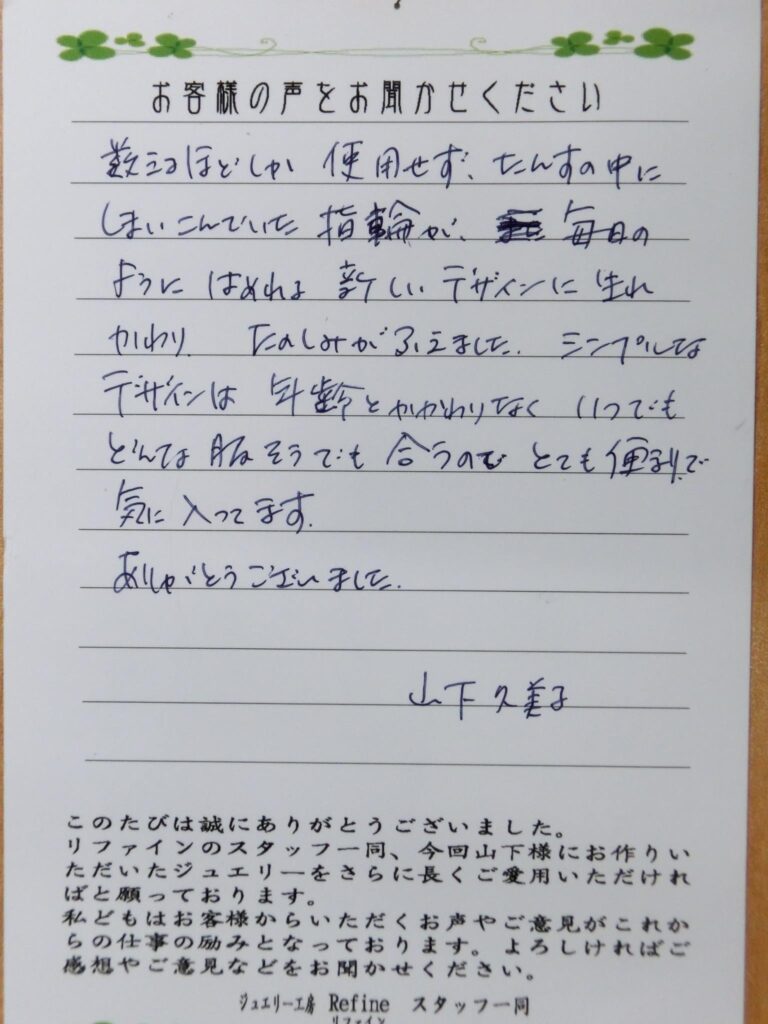 お客様の声をお聞かせください
数えるほどしか 使用せず、たんすの中に
しまいこんでいた 指輪が、 毎日の
ように はめれる 新しい デザインに 生れ
かわり、 たのしみが ふえました。 シンプルな
デザインは 年齢とかかわりなく いつでも
どんな 服そうでも 合うので とても 便利で
気に 入ってます。
ありがとうございました。
山下 久美子
このたびは誠にありがとうございました。
リファインのスタッフ一同、今回山下様にお作りい
ただいたジュエリーをさらに長くご愛用いただけれ
ばと願っております。
私どもはお客様からいただくお声やご意見がこれか
らの仕事の励みとなっております。よろしければご
感想やご意見などをお聞かせください。
ジュエリー工房 Refine スタッフ一同
リファイン